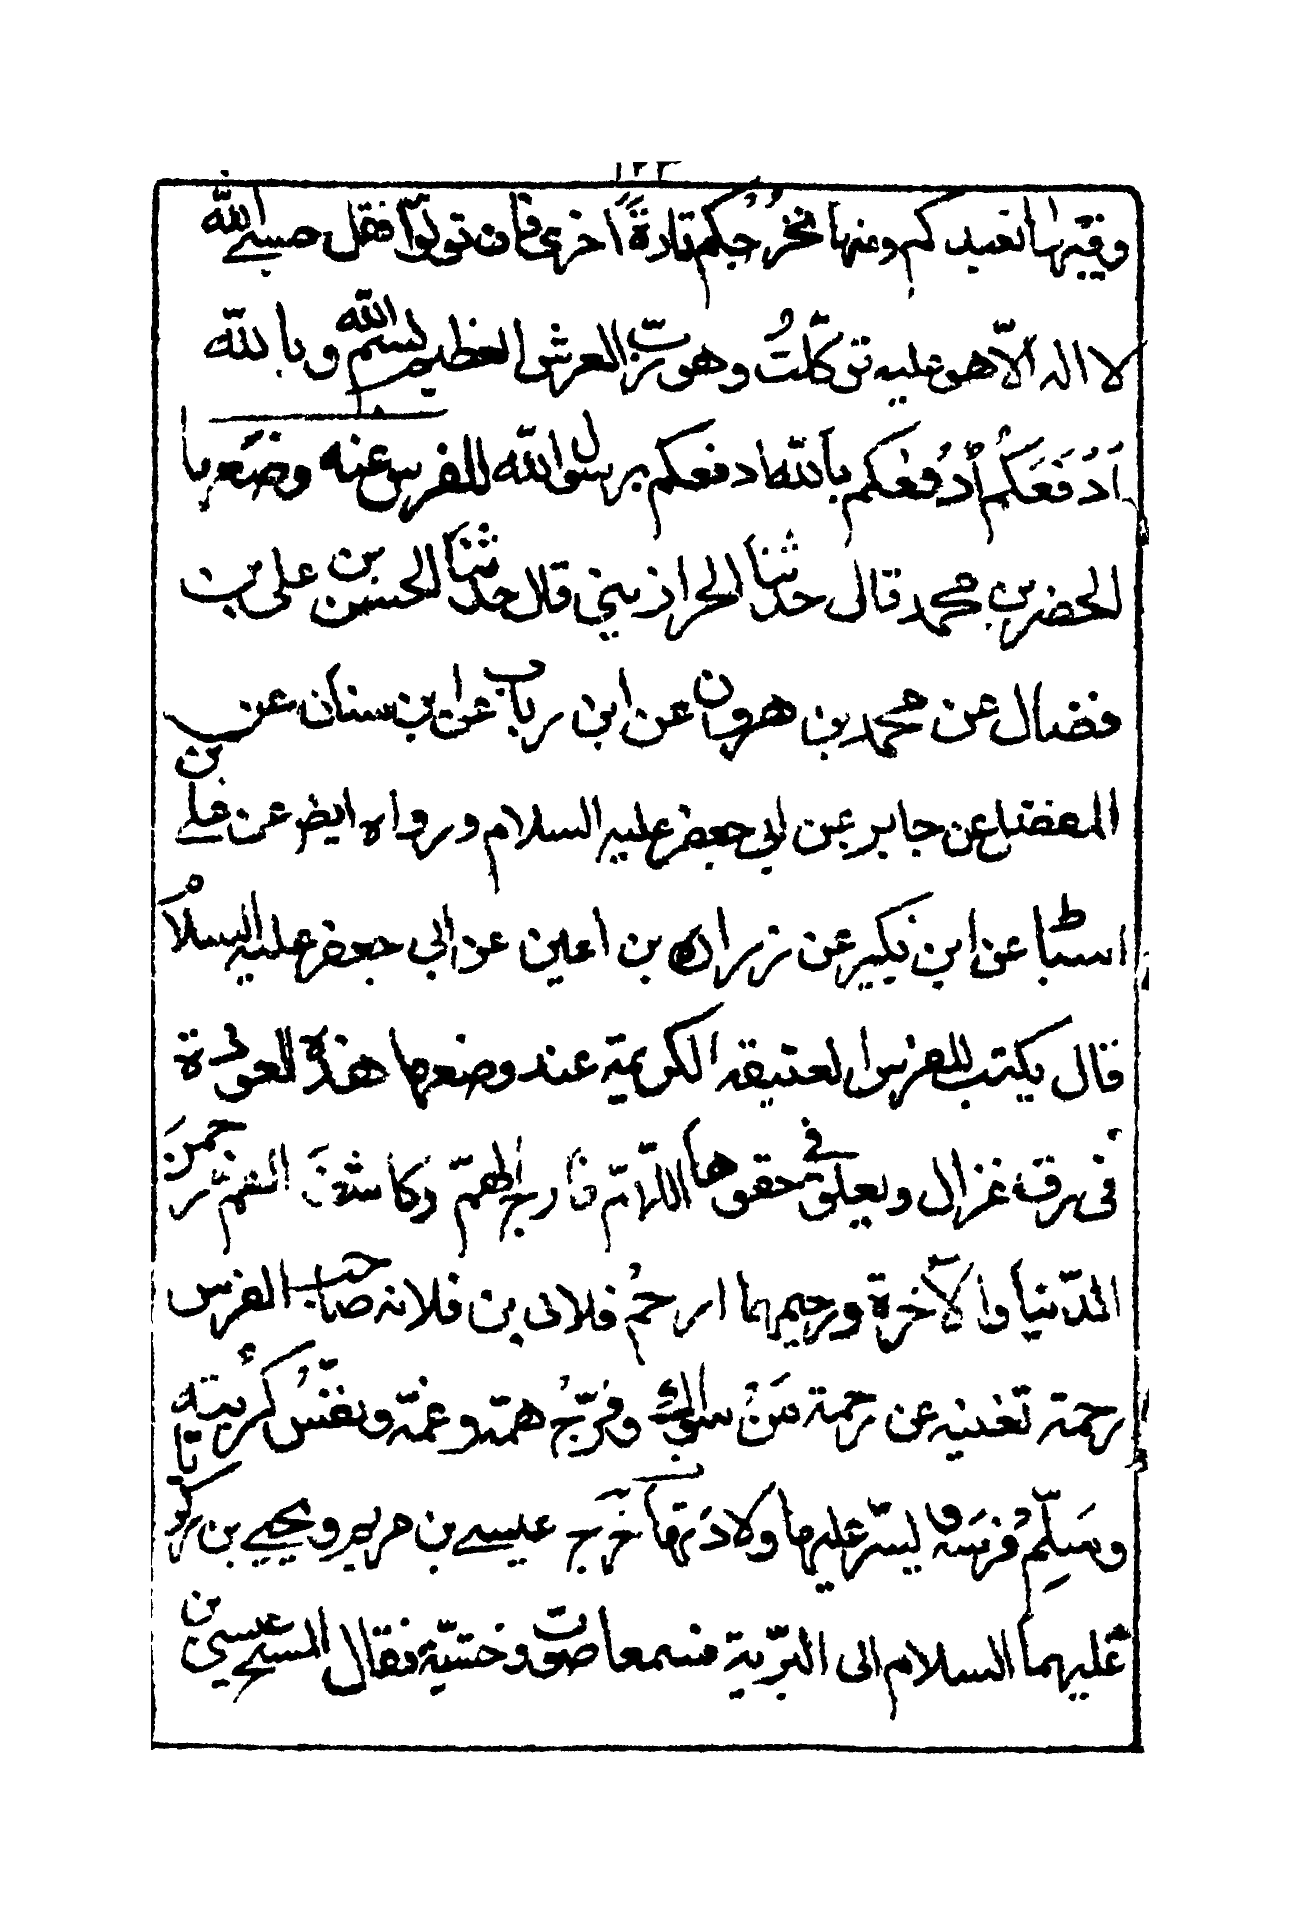 ١٢٣
وفيها نعيدكم ومنها نخرجكم تارة اخرى فان تولوا فقل حسبي الله
لا اله الا هو عليه توكلت وهو رب العرش العظيم بسم الله وبالله
ادفعكم ادفعكم بالله ادفعكم برسول الله للفرس عنه وضعها
الخضر بن محمد قال حدثنا الخراذيني قال حدثنا الحسن بن علي بن
فضال عن محمد بن هرون عن ابن رباب عن ابن سنان عن
المفضل عن جابر عن ابي جعفر عليه السلام ورواه ايض عن علي بن
اسباط عن ابن بكير عن زراره بن اعين عن ابي جعفر عليه السلام
قال يكتب للفرس العتيقه الكريمة عند وضعها هذه العوذة
في رق غزال ويعلق في حقوها اللهم فارج الهم وكاشف الغم رحمن
الدنيا والآخرة ورحيمهما ارحم فلان بن فلانه صاحب الفرس
رحمة تغنيه عن رحمة من سواك وفرج همه وغمه ونفس كربته
وسلم فرسه ويسر عليها ولادتها خرج عيسى بن مريم ويحيى بن زكريا
عليهما السلام الى البرية فسمعا صوت وحشية فقال المسيح عيسى بن